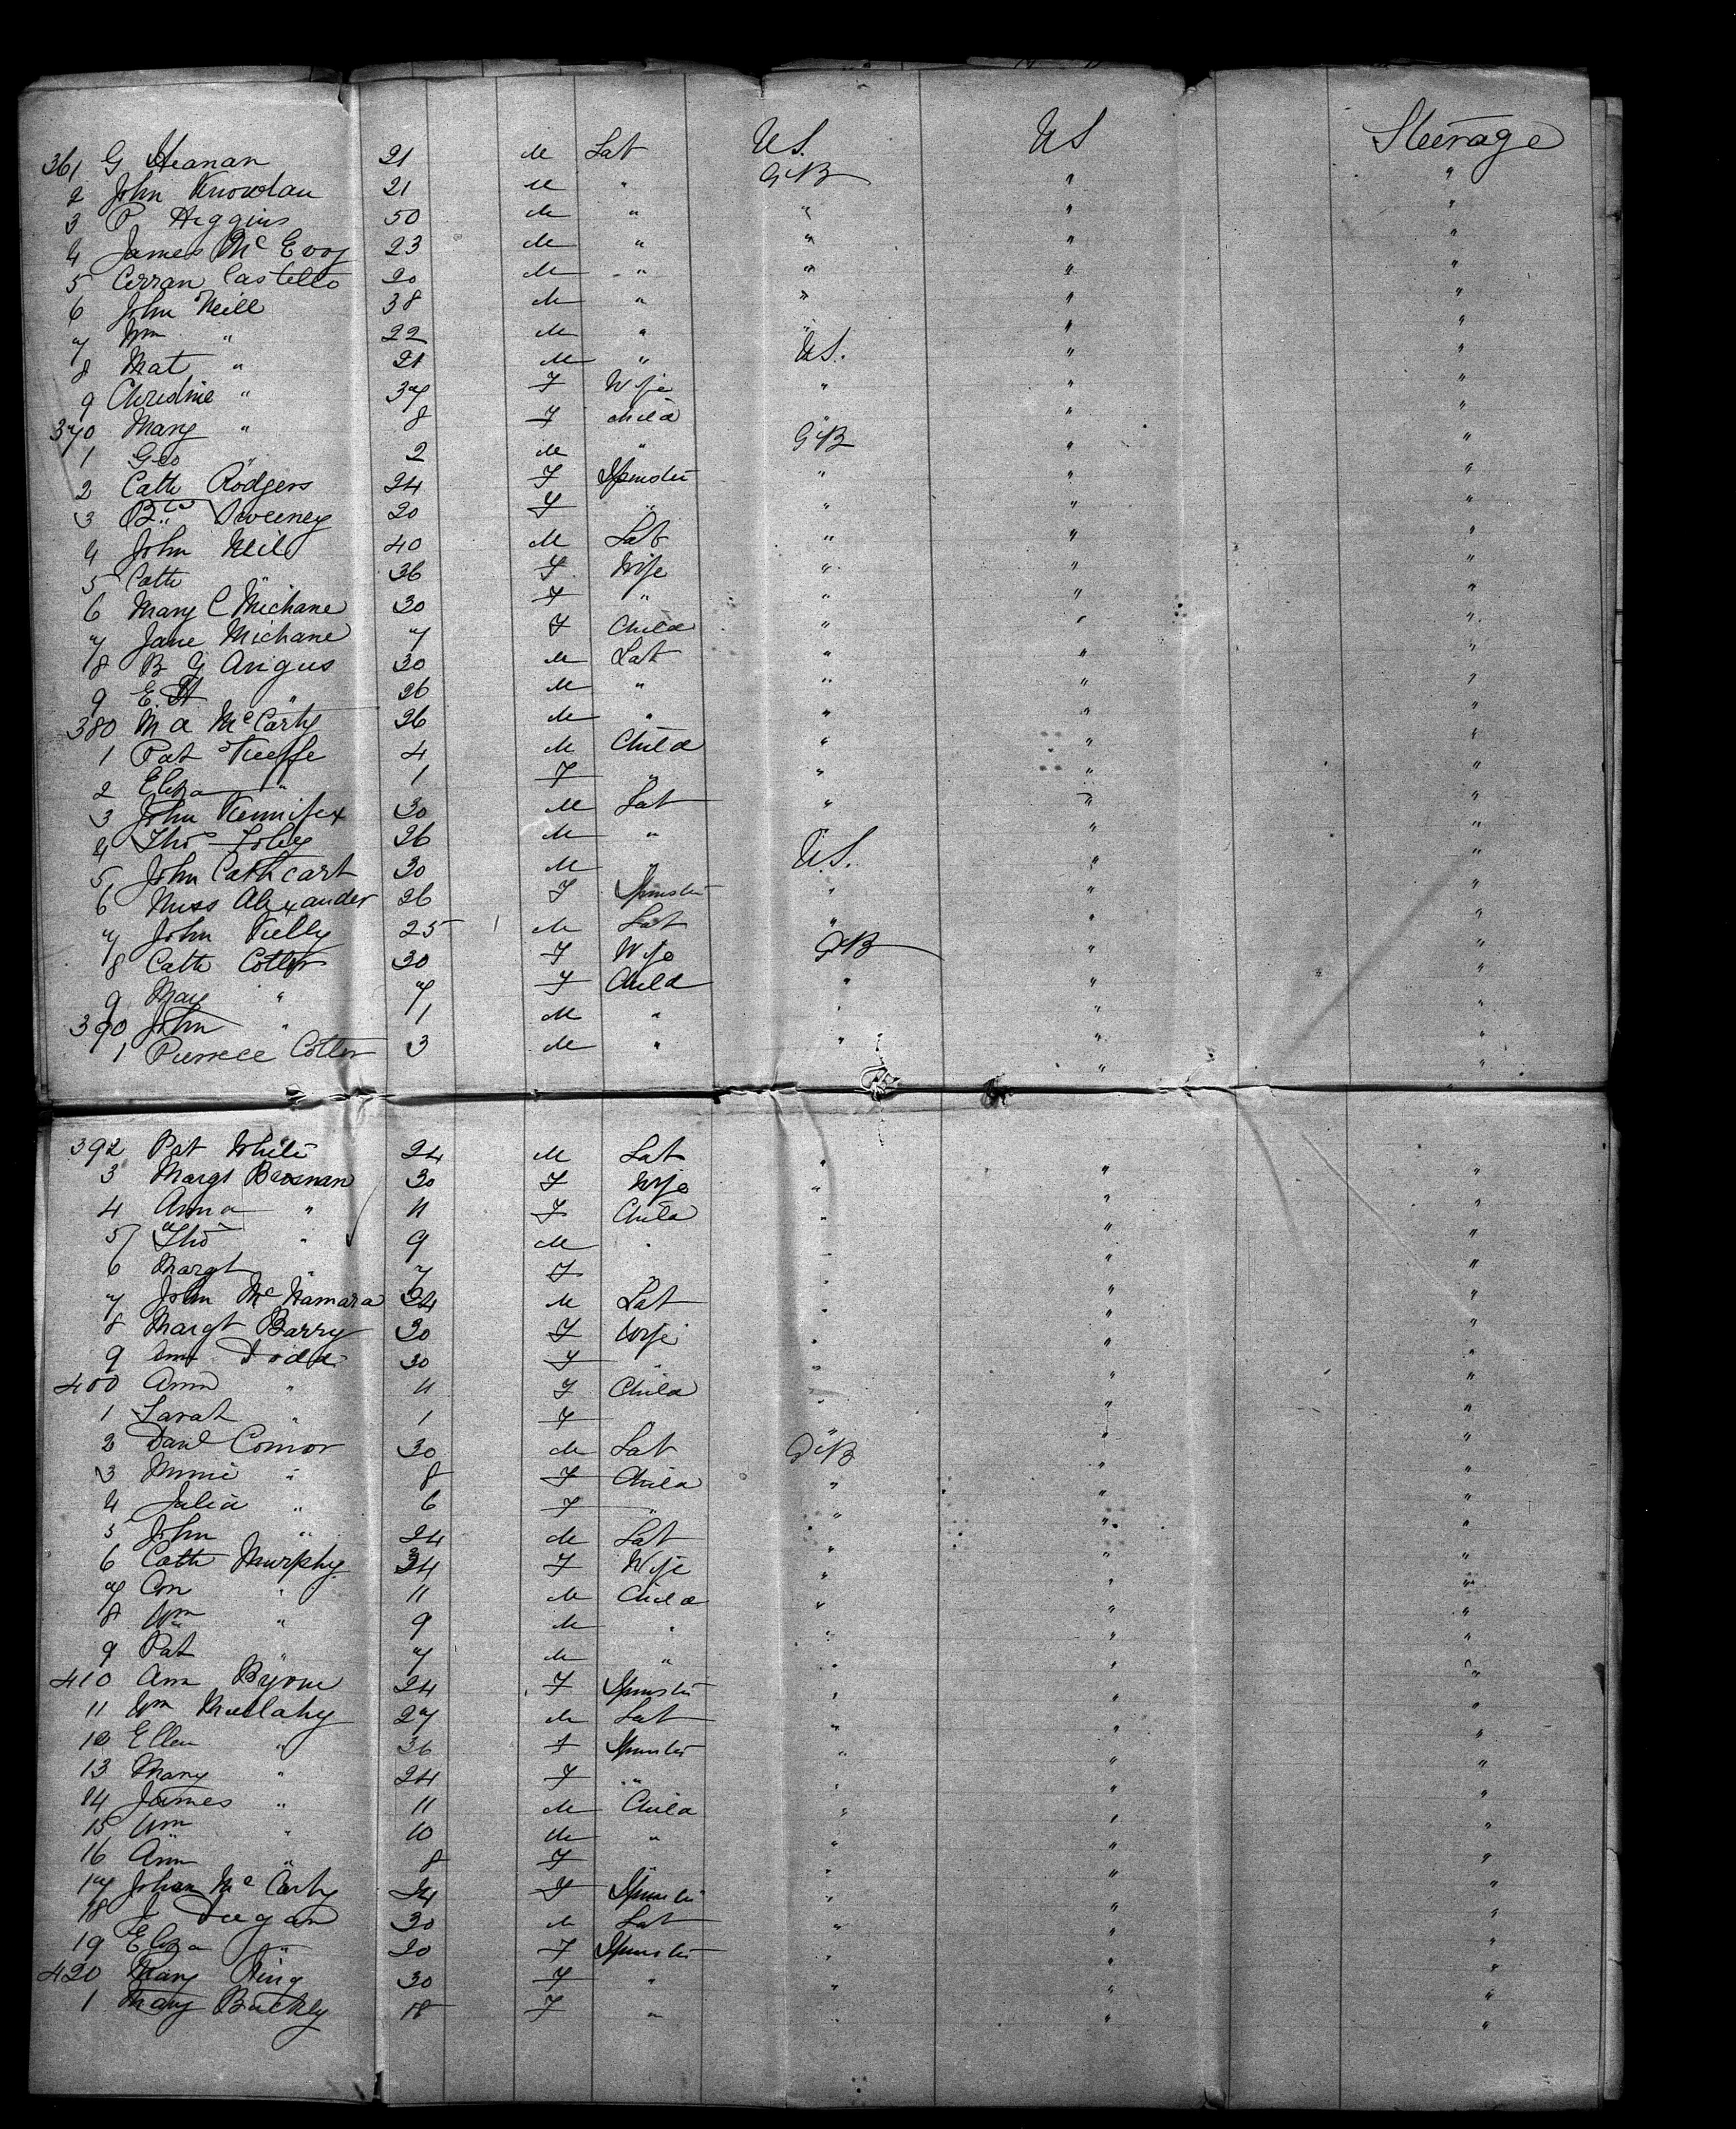 361 G Heanan 21 M Lab US. US Steerage
2 John Knowlan 21 M " GtB " "
3 P Higgins 50 M " " " "
4 James McEvoy 23 M " " " "
5 Castello 20 M " " " "
6 John Neill 38 M " " " "
7 Wm " 22 M " " " "
8 Mat " 21 M " US. " "
9 Christine " 37 F Wife " " "
370 Mary " 8 F Child " " "
1 Geo " 2 M " GtB " "
2 Cath Rodgers 24 F Spinster " " "
3 Sweeney 20 F " " " "
4 John Neil 40 M Lab " " "
5 Cath " 36 F Wife " " "
6 Mary C Michane 30 F " " " "
7 Jane Michane 7 F Child " " "
8 B G Angus 30 M Lab " " "
9 E. H " 26 M " " " "
380 M A McCarty 26 M " " " "
1 Pat Keeffe 4 M Child " " "
2 Eliza " 1 F " " " "
3 John Kennifex 30 M Lab " " "
4 Thos Foley 26 M " " " "
5 John Cathcart 30 M " US. " "
6 Miss Alexander 26 F Spinster " " "
7 John Kelly 25 M Lab " " "
8 Cath Cotter 30 F Wife GtB " "
9 May " 7 F Child " " "
390 John " 1 M " " " "
1 Pierrece Cotter 3 M " " " "
392 Pat White 24 M Lab " " "
3 Margt Brosnan 30 F Wife " " "
4 Anna " 11 F Child " " "
5 Thos " 9 M " " " "
6 Margt " 7 F " " " "
7 John McNamara 24 M Lab " " "
8 Margt Barry 30 F Wife " " "
9 Ann Dodd 30 F " " " "
400 Ann " 11 F Child " " "
1 Sarah " 1 F " " " "
2 Danl Connor 30 M Lab GtB " "
3 Minnie " 8 F Child " " "
4 Julia " 6 F " " " "
5 John " 24 M Lab " " "
6 Cath Murphy 34 F Wife " " "
7 Con " 11 M Child " " "
8 Wm " 9 M " " " "
9 Pat " 7 M " " " "
410 Ann Byrne 24 F Spinster " " "
11 Wm Mullahy 27 M Lab " " "
12 Ellen " 36 F Spinster " " "
13 Mary " 24 F " " " "
14 James " 11 M Child " " "
15 Wm " 10 M " " " "
16 Ann " 8 F " " " "
17 Johan McCarty 24 F Spinster " " "
18 J Deegan 30 M Lab " " "
19 Eliza " 20 F Spinster " " "
420 Mary King 30 F " " " "
1 Mary Buckly 18 F " " " "